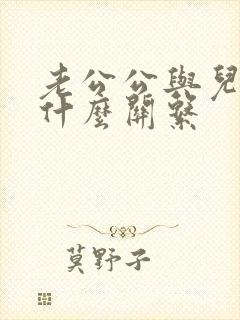 老公公與兒
什麼關繫
莫野子